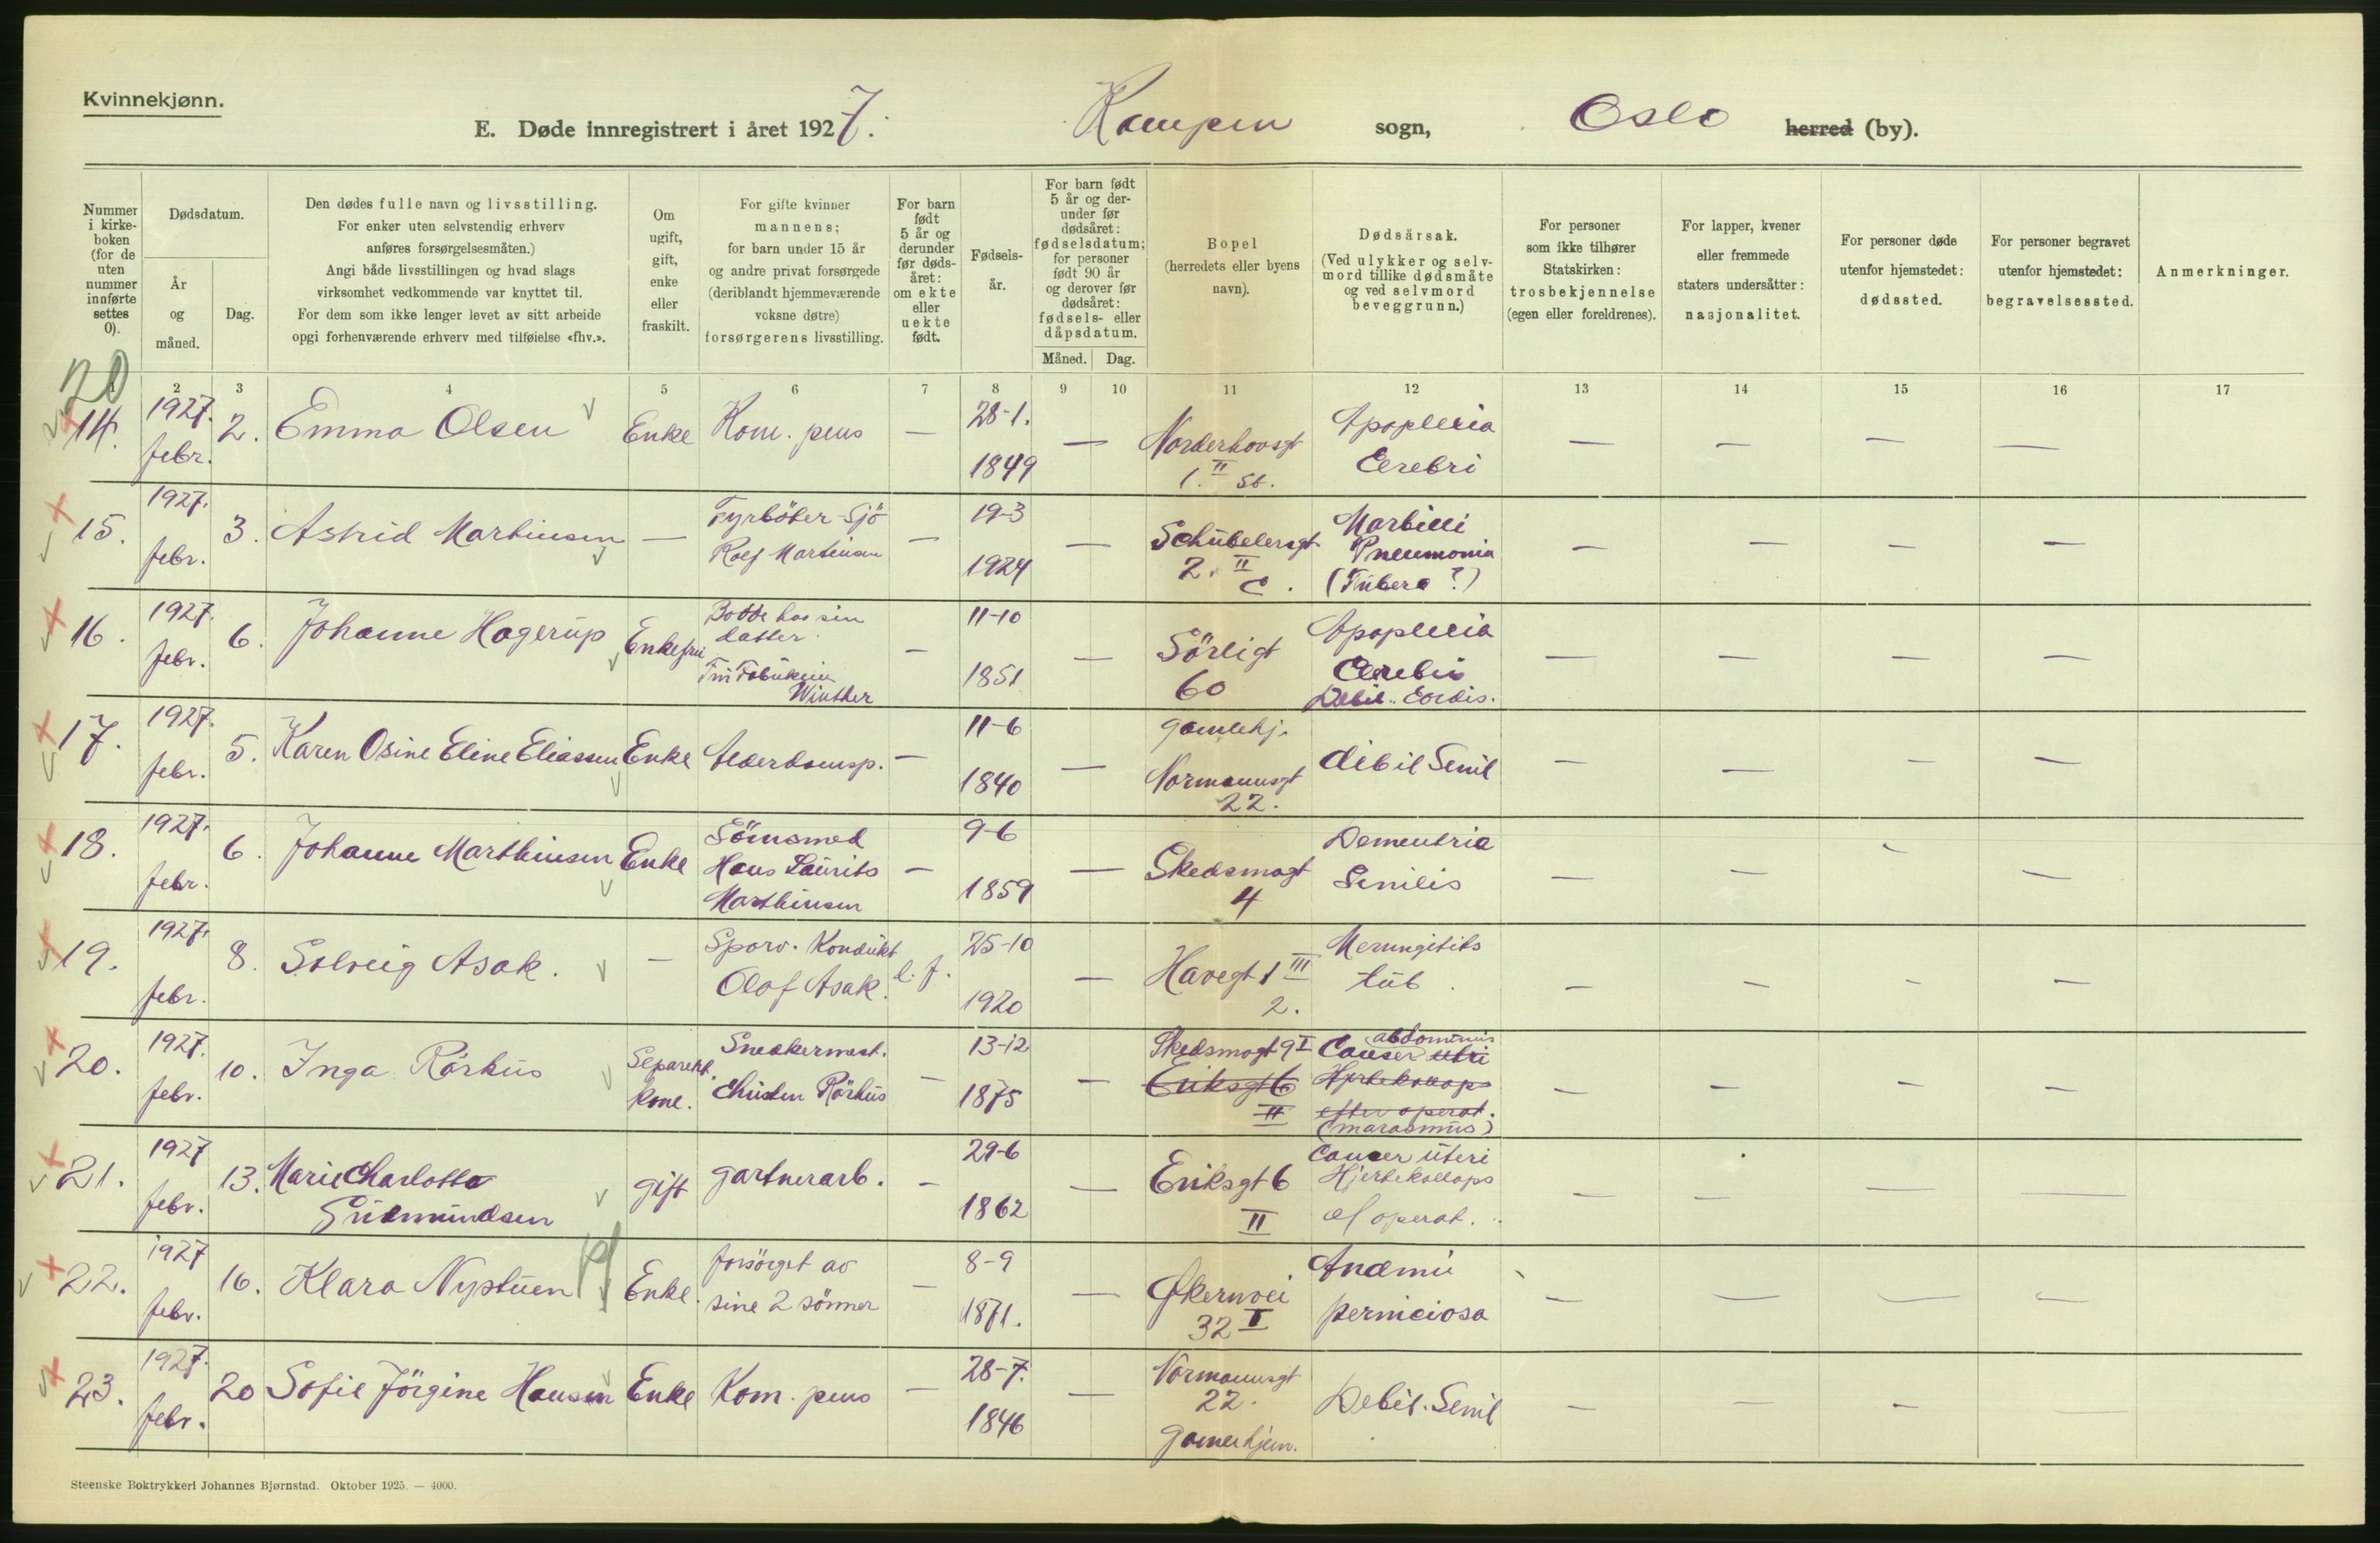 Kvinnekjønn.
E. Døde innregistrert i året 1927. Kampen sogn, Oslo herred (by).
Nummer i kirkeboken (for de uten nummer innførte settes 0).
Dødsdatum.
År og måned.
Dag.
Den dødes fulle navn og livsstilling.
For enker uten selvstendig erhverv
anføres forsørgelsesmåten.)
Angi både livsstillingen og hvad slags
virksomhet vedkommende var knyttet til.
For dem som ikke lenger levet av sitt arbeide
opgi forhenværende erhverv med tilføielse «fhv.».
Om ugift, gift, enke eller fraskilt.
For gifte kvinner
mannens;
for barn under 15 år
og andre privat forsørgede
(deriblandt hjemmeværende
voksne døtre)
forsørgerens livsstilling.
For barn født 5 år og derunder før dødsåret: om ekte eller uekte født.
Fødselsår.
For barn født 5 år og derunder før dødsåret: fødselsdatum; for personer født 90 år og derover før dødsåret: fødsels- eller dåpsdatum.
Måned. Dag.
Bopel
(herredets eller byens
navn).
Dødsårsak.
(Ved ulykker og selv-
mord tillike dødsmåte
og ved selvmord
beveggrunn.)
For personer
som ikke tilhører
Statskirken:
trosbekjennelse
(egen eller foreldrenes).
For lapper, kvener
eller fremmede
staters undersåtter:
nasjonalitet.
For personer døde
utenfor hjemstedet:
dødssted.
For personer begravet
utenfor hjemstedet:
begravelsessted.
Anmerkninger.
20
1 2 3 4 5 6 7 8 9 10 11 12 13 14 15 16 17
14. 1927. febr. 2. Emma Olsen Enke Kom. pens — 28-1. 1849 — Norderhovsgt 1. II st. Apoplexia Cerebri — — — —
15. 1927. febr. 3. Astrid Martinsen — Fyrböter-Sjö Rolf Martinsen — 19-3 1924 — Schübelersgt 2. II C. Morbilli Pneumonia (Tuberc?) — — — —
16. 1927. febr. 6. Johanne Hagerup Enkefru Bodde hos sin datter — 11-10 1851 — Sörligt 60 Apoplexia Cerebri Debil. Cordis. — — — —
Winther
17. 1927. febr. 5. Karen Osine Eline Eliassen Enke Alderdomsp. — 11-6 1840 — Gamlehj. Normannsgt 22. debil Senil — — — —
18. 1927. febr. 6. Johanne Marthinsen Enke Sömsmed Hans Laurits Marthinsen — 9-6 1859 — Skedsmogt 4 Dementria Senilis — — — —
19. 1927. febr. 8. Solveig Asak. — Sporv. Kondukt Olof Asak. e. f. 25-10 1920 — Havegt 1 III 2. Menungitits tub. — — — —
20. 1927. febr. 10. Inga Rörhus Separert kone. Snekkermest. Christen Rörhus — 13-12 1875 — Skedsmogt 9 I Eriksgt 6 II Cancer uteri abdominis Hjertekollaps efter operat. (marasmus) — — — —
21. 1927 febr. 13. Marie Charlotte Gudmundsen gift gartnerarb. — 29-6 1862 — Eriksgt 6 II Cancer uteri Hjertekollaps ef operat. — — — —
22. 1927 febr. 16. Klara Nystuen Enke. forsörget av sine 2 sönner — 8-9 1871. — Økernvei 32 I Anæmii perniciosa — — — —
23. 1927. febr. 20 Sofie Jörgine Hansen Enke Kom. pens — 28-7. 1846 — Normannsgt 22. Gamlehjem. Debil. Senil — — — —
Steenske Boktrykkeri Johannes Bjørnstad. Oktober 1925. — 4000.